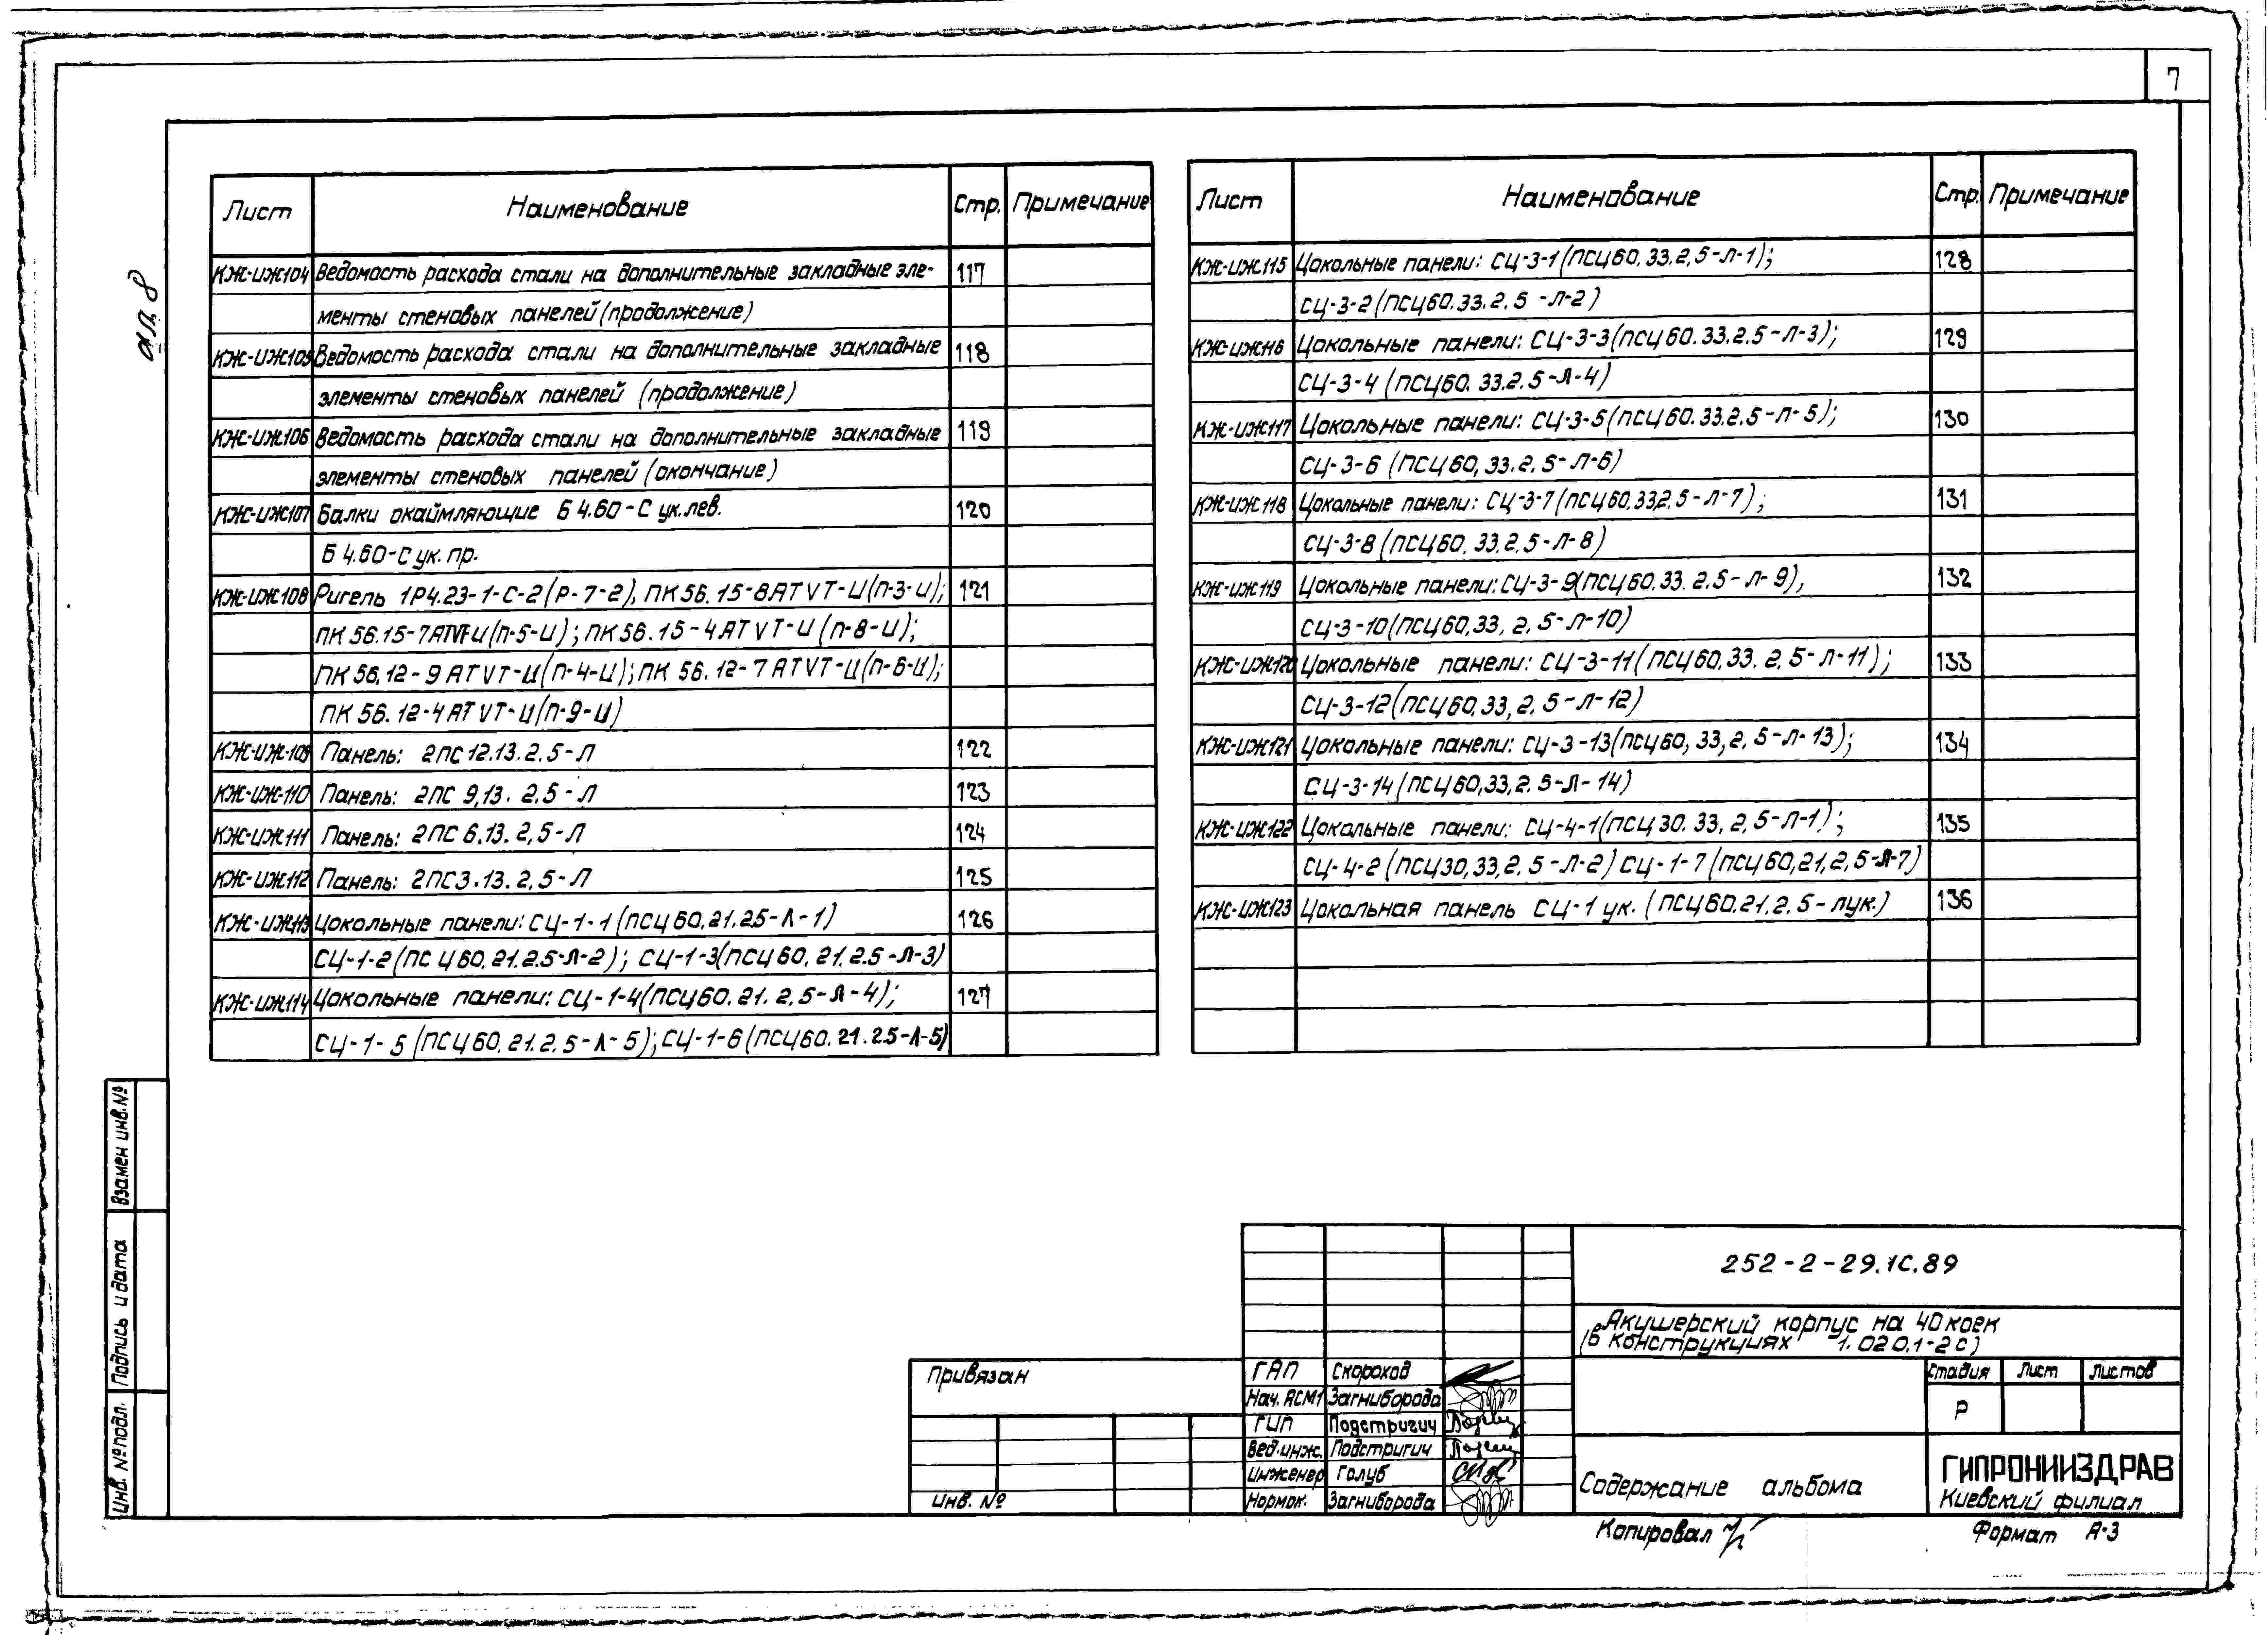 7
ал. 8
Лист Наименование Стр. Примечание
КЖ-ИЖ104 Ведомость расхода стали на дополнительные закладные эле- 117
менты стеновых панелей (продолжение)
КЖ-ИЖ105 Ведомость расхода стали на дополнительные закладные 118
элементы стеновых панелей (продолжение)
КЖ-ИЖ106 Ведомость расхода стали на дополнительные закладные 119
элементы стеновых панелей (окончание)
КЖ-ИЖ107 Балки окаймляющие Б 4.60-С ук. лев. 120
Б 4.60-С ук. пр.
КЖ-ИЖ108 Ригель 1Р4.23-1-С-2 (Р-7-2), ПК 56.15-8АТVТ-И (п-3-и); 121
ПК 56.15-7АТVТ-И (п-5-и); ПК 56.15-4АТVТ-И (п-8-и);
ПК 56.12-9 АТVТ-И (п-4-и); ПК 56.12-7 АТVТ-И (п-6-и);
ПК 56.12-4АТVТ-И (п-9-и)
КЖ-ИЖ-109 Панель: 2ПС 12.13.2.5-Л 122
КЖ-ИЖ-110 Панель: 2ПС 9,13. 2,5-Л 123
КЖ-ИЖ111 Панель: 2ПС 6.13.2,5-Л 124
КЖ-ИЖ112 Панель: 2ПС3.13.2,5-Л 125
КЖ-ИЖ113 Цокольные панели: СЦ-1-1 (ПСЦ 60,21.2.5-Л-1) 126
СЦ-1-2 (ПСЦ 60.21.2.5-Л-2); СЦ-1-3(ПСЦ 60, 21.2.5-Л-3)
КЖ-ИЖ114 Цокольные панели: СЦ-1-4(ПСЦ60.21.2,5-Л-4); 127
СЦ-1-5 (ПСЦ 60,21.2,5-Л-5); СЦ-1-6 (ПСЦ60.21.2.5-Л-5)
Лист Наименование Стр. Примечание
КЖ-ИЖ115 Цокольные панели: СЦ-3-1 (ПСЦ60.33.2,5-Л-1); 128
СЦ-3-2 (ПСЦ60.33.2.5-Л-2)
КЖ-ИЖ116 Цокольные панели: СЦ-3-3(ПСЦ 60.33.2.5-Л-3); 129
СЦ-3-4 (ПСЦ60.33.2.5-Л-4)
КЖ-ИЖ117 Цокольные панели: СЦ-3-5(ПСЦ60.33.2.5-Л-5); 130
СЦ-3-6 (ПСЦ60,33.2,5-Л-6)
КЖ-ИЖ118 Цокольные панели: СЦ-3-7 (ПСЦ60.33.2,5-Л-7); 131
СЦ-3-8 (ПСЦ60.33.2,5-Л-8)
КЖ-ИЖ119 Цокольные панели: СЦ-3-9(ПСЦ60.33.2.5-Л-9), 132
СЦ-3-10(ПСЦ60,33,2,5-Л-10)
КЖ-ИЖ120 Цокольные панели: СЦ-3-11(ПСЦ60,33.2,5-Л-11); 133
СЦ-3-12(ПСЦ60,33,2,5-Л-12)
КЖ-ИЖ121 Цокольные панели: СЦ-3-13(ПСЦ60,33,2,5-Л-13); 134
СЦ-3-14(ПСЦ60,33,2,5-Л-14)
КЖ-ИЖ122 Цокольные панели: СЦ-4-1(ПСЦ 30.33,2,5-Л-1); 135
СЦ-4-2 (ПСЦ30,33,2,5-Л-2) СЦ-1-7 (ПСЦ60,21,2,5-Л-7)
КЖ-ИЖ123 Цокольная панель СЦ-1 ук. (ПСЦ60.21.2,5-Лук.) 136
Взамен инв.№
Подпись и дата
Инв. № подл.
252-2-29.1С.89
Акушерский корпус на 40 коек
(в конструкциях 1.020.1-2с)
Привязан
Инв. №
ГАП Скороход
Нач. АСМ1 Загниборода
ГИП Подстригич
Вед.инж. Подстригич
Инженер Голуб
Нормок. Загниборода
Стадия Лист Листов
Р
Содержание альбома
ГИПРОНИИЗДРАВ
Киевский филиал
Копировал
Формат А-3